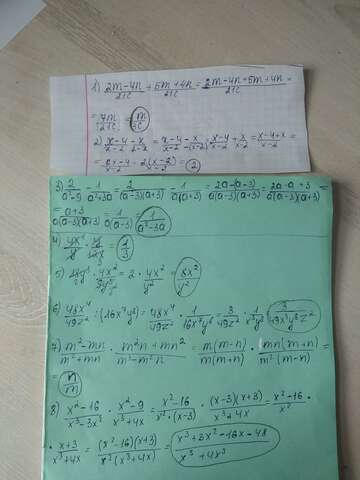 1) (2m-4n)/21c + (5m+4n)/21c = (2m-4n+5m+4n)/21c =
= 7m/21c = m/3c
2) (x-4)/(x-2) - x/(2-x) = (x-4)/(x-2) - x/(-(x-2)) = (x-4)/(x-2) + x/(x-2) = (x-4+x)/(x-2) =
= (2x-4)/(x-2) = 2(x-2)/(x-2) = 2
3) 2/(a²-9) - 1/(a²+3a) = 2/((a-3)(a+3)) - 1/(a(a+3)) = (2a-(a-3))/(a(a-3)(a+3)) = (2a-a+3)/(a(a-3)(a+3)) =
= (a+3)/(a(a-3)(a+3)) = 1/(a(a-3)) = 1/(a²-3a)
= 1/3
· 4x²/ = 2 · 4x²/y² = 8x²/y²
6) 48x⁴/49z² : (16x⁴y³) = 48x⁴/49z² · 1/16x⁴y³ = 3/49z² ·
7) (m²-mn)/(m²+mn) · (m²n+mn²)/(m³-m²n) = m(m-n)/m(m+n) · mn(m+n)/m²(m-n) =
= n/m
8) (x²-16)/(x³-3x²) · (x²-9)/(x³+4x) = (x²-16)/(x²·(x-3)) · (x-3)(x+3)/(x³+4x) = (x²-16)/x² ·
· (x+3)/(x³+4x) = (x²-16)(x+3)/(x²(x³+4x)) = (x³+3x²-16x-48)/(x⁵+4x³)